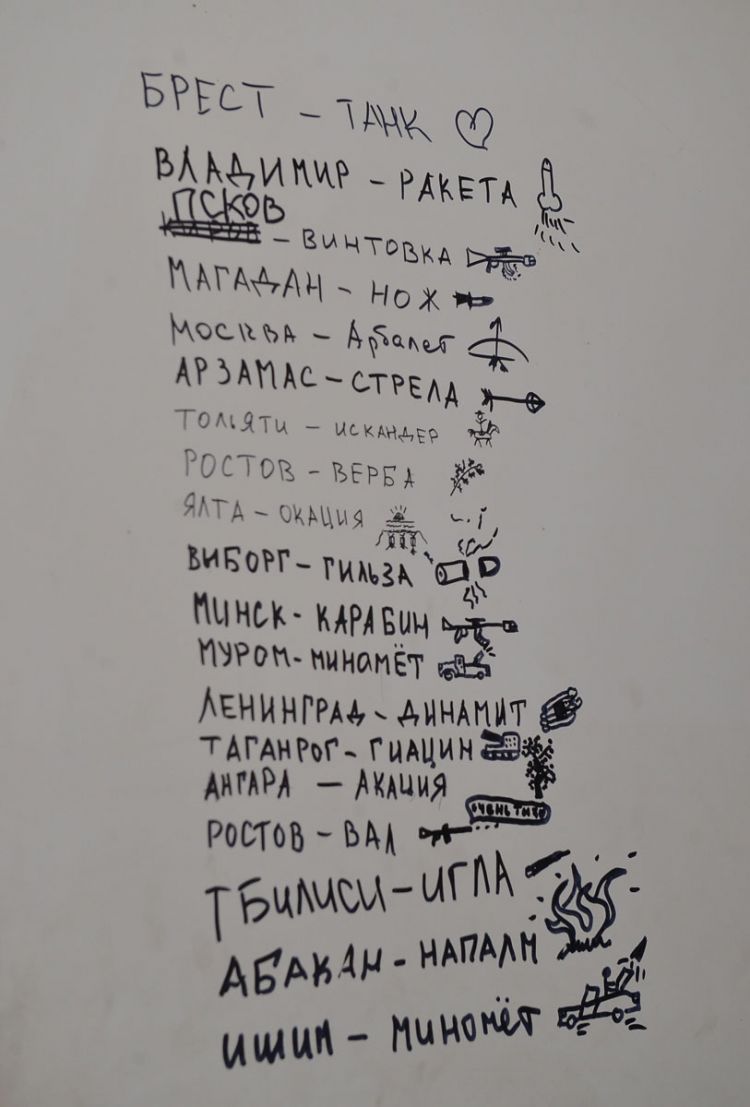 БРЕСТ – ТАНК
ВЛАДИМИР – РАКЕТА
ПСКОВ
– ВИНТОВКА
МАГАДАН – НОЖ
МОСКВА – Арбалет
АРЗАМАС – СТРЕЛА
ТОЛЬЯТИ – ИСКАНДЕР
РОСТОВ – ВЕРБА
ЯЛТА – ОКАЦИЯ
ВИБОРГ – ГИЛЬЗА
МИНСК - КАРАБИН
МУРОМ - МИНАМЁТ
ЛЕНИНГРАД - ДИНАМИТ
ТАГАНРОГ - ГИАЦИН
АНГАРА – АКАЦИЯ
ОЧЕНЬ ТИХО
РОСТОВ – ВАЛ
ТБИЛИСИ – ИГЛА
АБАКАН - НАПАЛМ
ИШИМ – МИНОМЁТ